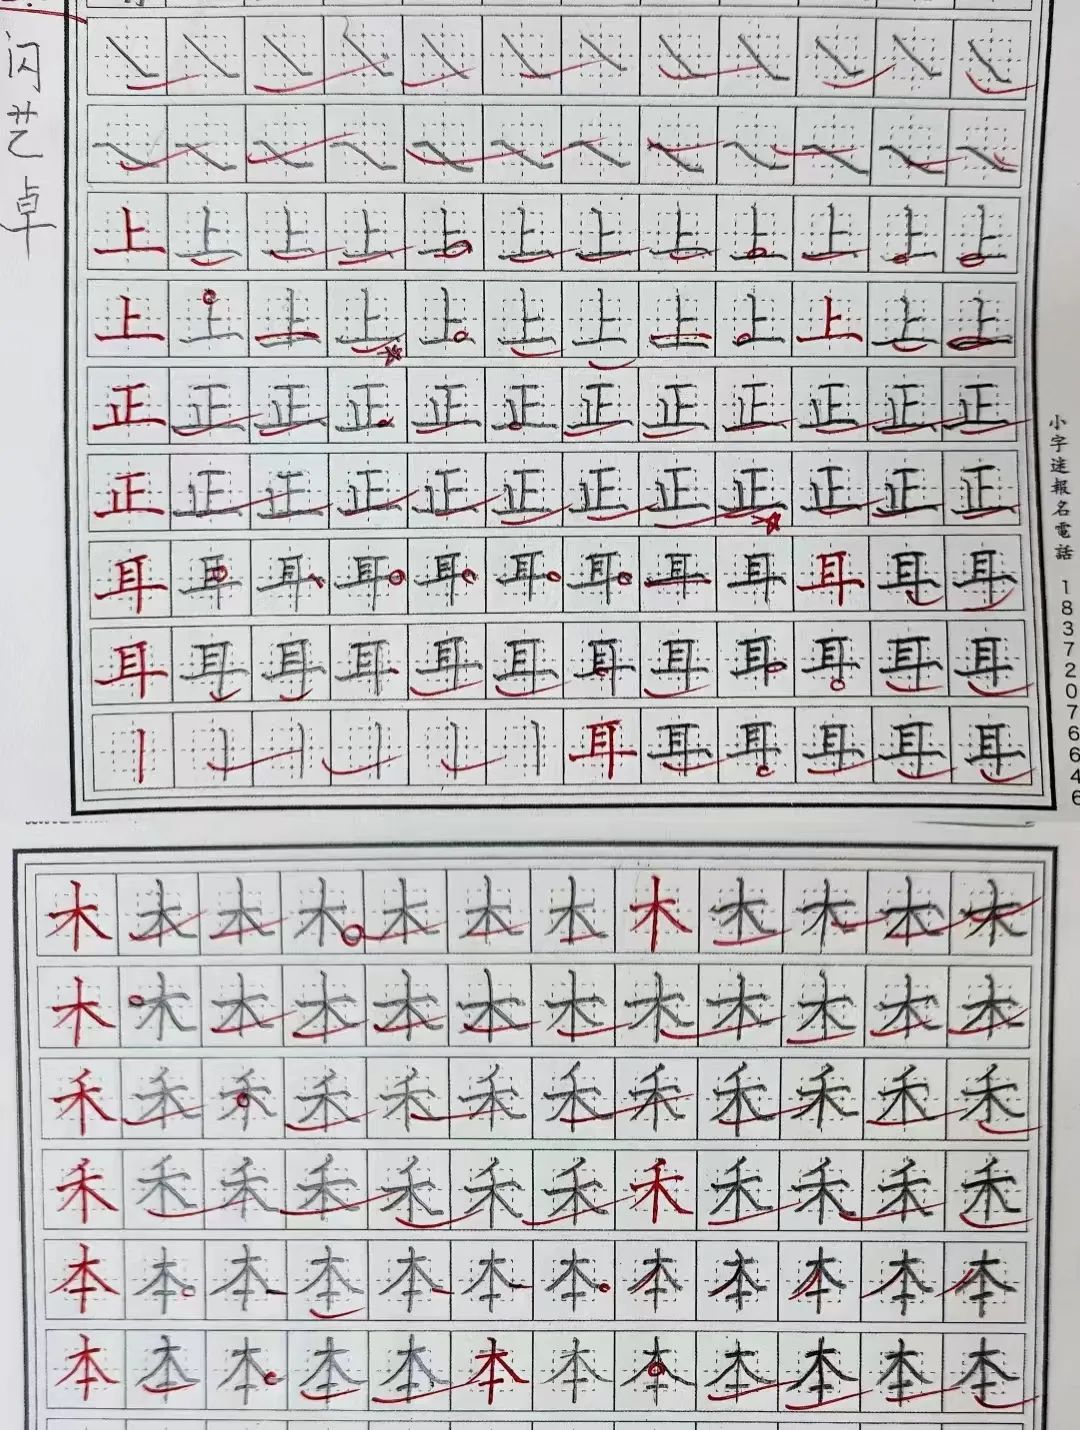 闪艺卓
上上上上上上上上上上上上
上上上上上上上上上上上上
正正正正正正正正正正正正
正正正正正正正正正正正正
耳耳耳耳耳耳耳耳耳耳耳耳
耳耳耳耳耳耳耳耳耳耳耳耳
耳耳耳耳耳耳
小字迷報名電話 18372076646
木木木木木木木木木木木木
木木木木木木木木木木木木
禾禾禾禾禾禾禾禾禾禾禾禾
禾禾禾禾禾禾禾禾禾禾禾禾
本本本本本本本本本本本本
本本本本本本本本本本本本